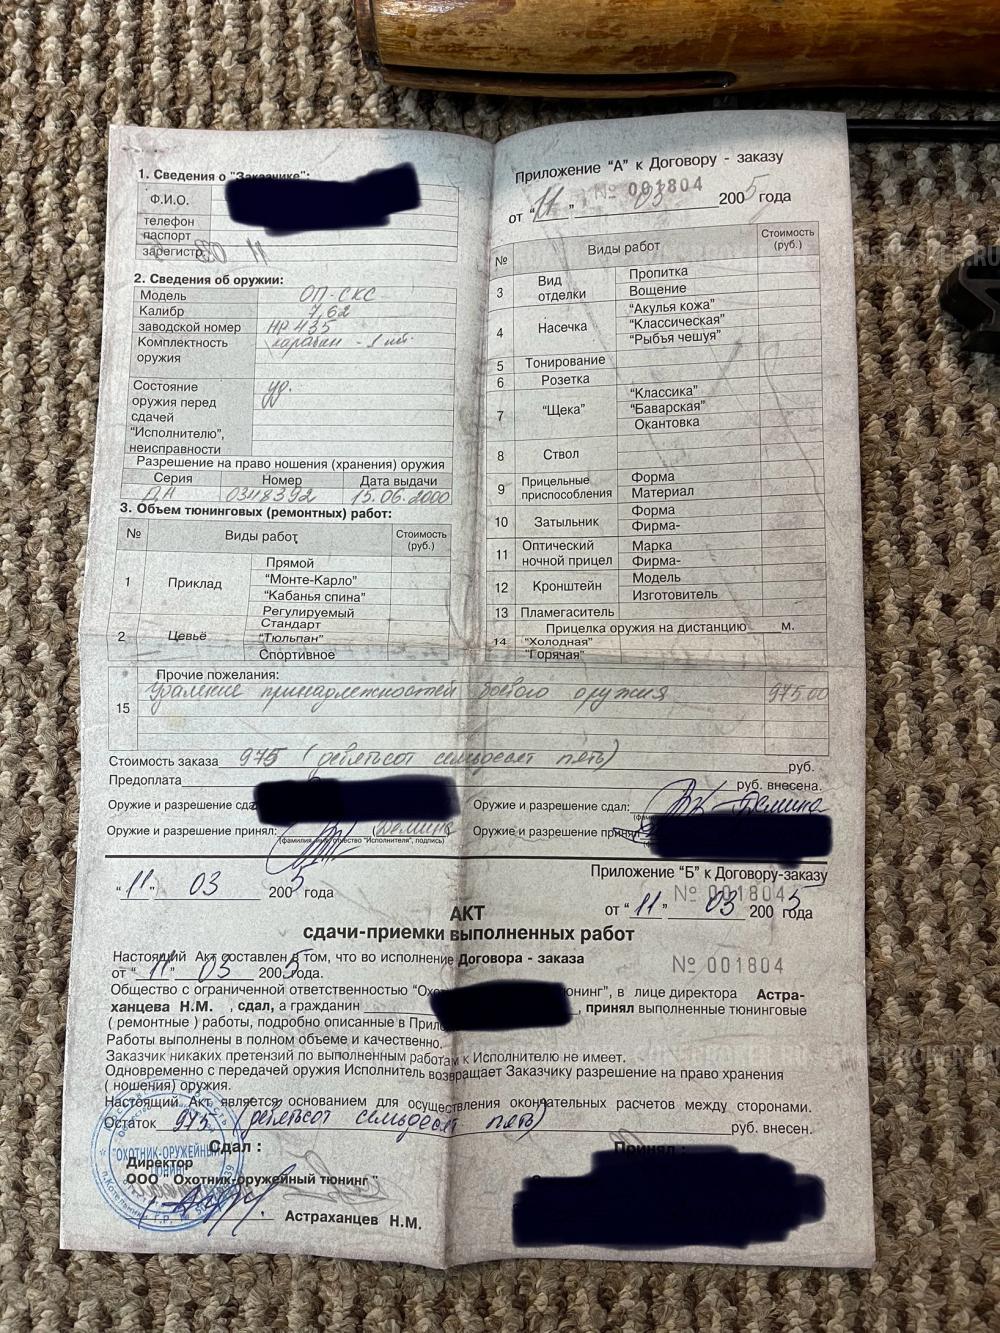 1. Сведения о "Заказчике":
Ф.И.О.
телефон
паспорт
зарегистр.
2. Сведения об оружии:
Модель ОП-СКС
Калибр 7,62
заводской номер НР 435
Комплектность карабин - 1 шт.
оружия
Состояние уд.
оружия перед
сдачей
"Исполнителю",
неисправности
Разрешение на право ношения (хранения) оружия
Серия Номер Дата выдачи
0348392 15.06.2000
3. Объем тюнинговых (ремонтных) работ:
№ Виды работ Стоимость (руб.)
1 Приклад
Прямой
"Монте-Карло"
"Кабанья спина"
Регулируемый
2 Цевьё
Стандарт
"Тюльпан"
Спортивное
Приложение "А" к Договору - заказу
№ 001804
от "11" 03 2005 года
№ Виды работ Стоимость (руб.)
3 Вид отделки
Пропитка
Вощение
4 Насечка
"Акулья кожа"
"Классическая"
"Рыбья чешуя"
5 Тонирование
6 Розетка
7 "Щека"
"Классика"
"Баварская"
Окантовка
8 Ствол
9 Прицельные приспособления
Форма
Материал
10 Затыльник
Форма
Фирма-
11 Оптический ночной прицел
Марка
Фирма-
12 Кронштейн
Модель
Изготовитель
13 Пламегаситель
14 Прицелка оружия на дистанцию ____ м.
"Холодная"
"Горячая"
15 Прочие пожелания:
удаление принадлежностей боевого оружия 975.00
Стоимость заказа 975 (девятьсот семьдесят пять) руб.
Предоплата руб. внесена.
Оружие и разрешение сда
Оружие и разрешение сдал: Демина
Оружие и разрешение принял: (Демина
(фамилия, имя, отчество "Исполнителя", подпись)
Оружие и разрешение принял
"11" 03 2005 года
Приложение "Б" к Договору-заказу
№ 001804
от "11" 03 2005 года
АКТ
сдачи-приемки выполненных работ
Настоящий Акт составлен в том, что во исполнение Договора - заказа
от "11" 03 2005 года. № 001804
Общество с ограниченной ответственностью "Охо онинг", в лице директора Астра-
ханцева Н.М. , сдал, а гражданин , принял выполненные тюнинговые
( ремонтные ) работы, подробно описанные в Прил
Работы выполнены в полном объеме и качественно.
Заказчик никаких претензий по выполненным работам к Исполнителю не имеет.
Одновременно с передачей оружия Исполнитель возвращает Заказчику разрешение на право хранения
( ношения) оружия.
Настоящий Акт является основанием для осуществления окончательных расчетов между сторонами.
Остаток 975 (девятьсот семьдесят пять) руб. внесен.
Сдал : Принял :
Директор
ООО " Охотник-оружейный тюнинг "
Астраханцев Н.М.
"ОХОТНИК-ОРУЖЕЙНЫЙ
ТЮНИНГ"